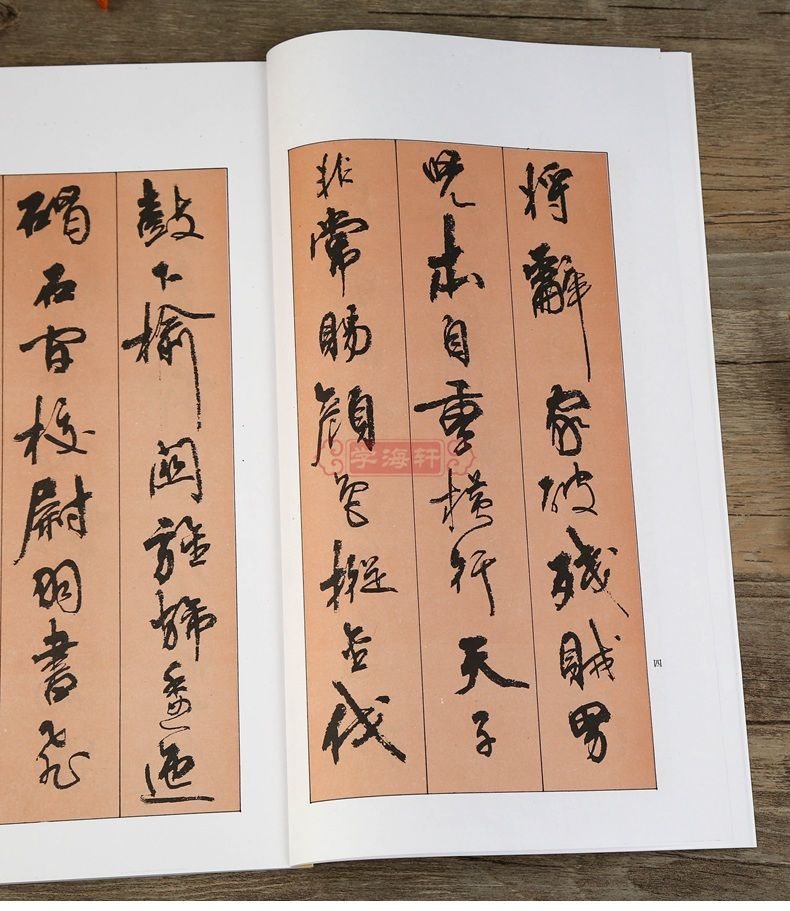 将辭家破殘賊男
兒本自重橫行天子
非常賜顏色摐金伐
鼓下榆関旌旆逶迤
碣石間校尉羽書飛
四
学海轩